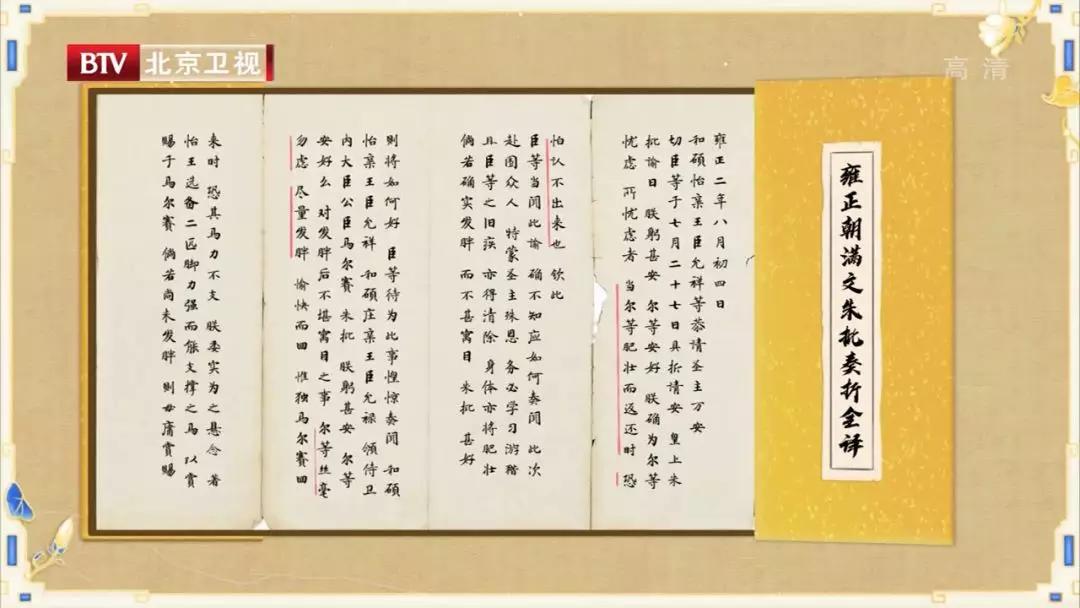 BTV 北京卫视
高清
雍正朝满文朱批奏折全译
雍正二年八月初四日
和硕怡亲王臣允祥等恭请圣主万安
切臣等于七月二十七日具折请安 皇上朱
批谕曰 朕躬甚安 尔等安好 朕确为尔等
忧虑 所忧虑者 当尔等肥壮而返还时 恐
怕认不出来也 钦此
臣等当闻此谕 确不知应如何奏闻 此次
赴围众人 特蒙圣主殊恩 务必学习游猎
且臣等之旧疾 亦得清除 身体亦将肥壮
倘若确实发胖 而不甚寓目 朱批 甚好
则将如何好 臣等待为此事惶惊奏闻 和硕
怡亲王臣允祥 和硕庄亲王臣允禄 领侍卫
内大臣公臣马尔赛 朱批 朕躬甚安 尔等
安好么 对发胖后不堪寓目之事 尔等丝毫
勿虑 尽量发胖 愉快而回 惟独马尔赛回
来时 恐其马力不支 朕委实为之悬念 著
怡王选备二匹脚力强而能支撑之马 以赏
赐于马尔赛 倘若尚未发胖 则毋庸赏赐